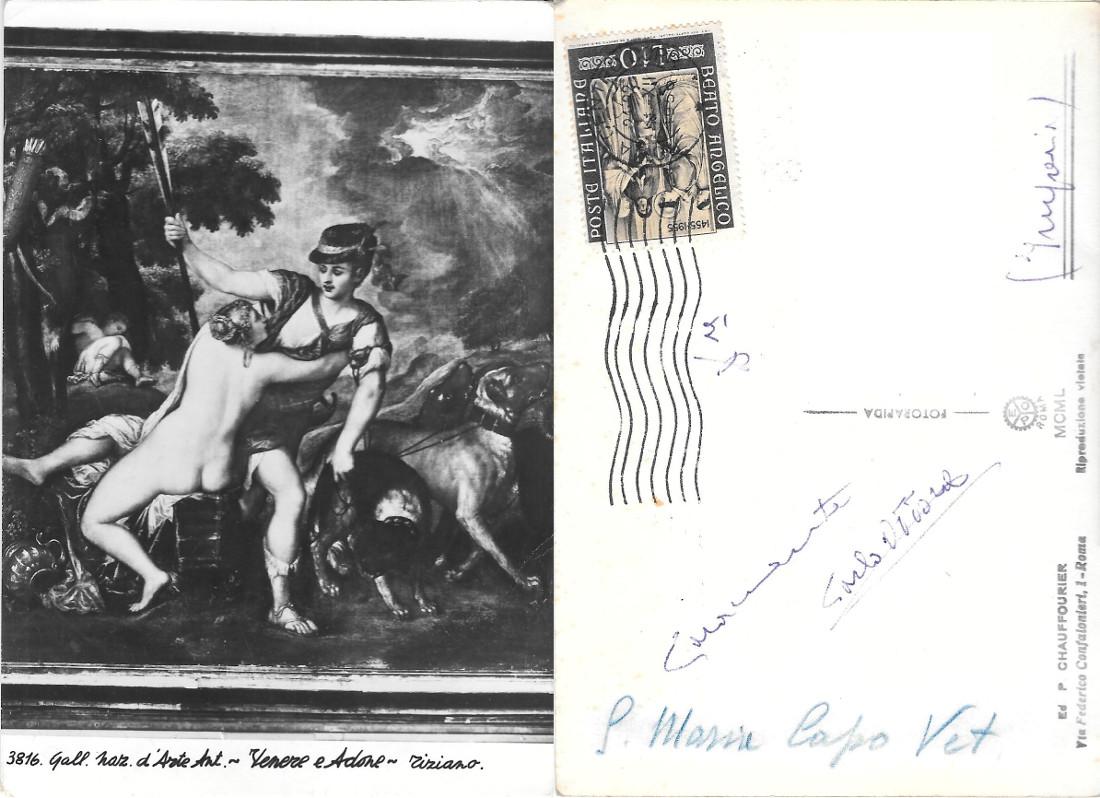 3816. Gall. Naz. d'Arte Ant. ~ Venere e Adone ~ Tiziano.
POSTE ITALIANE
L10
BEATO ANGELICO
1455-1955
FOTORAPIDA
ROMA
MCML
Riproduzione vietata
Ed P. CHAUFFOURIER
Via Federico Confalonieri, 1 - Roma
Caramente
Carlo
S. Maria Capo Vet